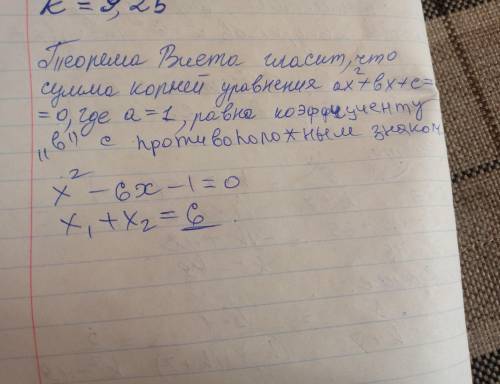 к = 9,25
Теорема Виета гласит, что
сумма корней уравнения ax²+bx+c=
=0, где a=1, равна коэффициенту
„b" с противоположным знаком.
x² - 6x - 1 = 0
x₁ + x₂ = 6.